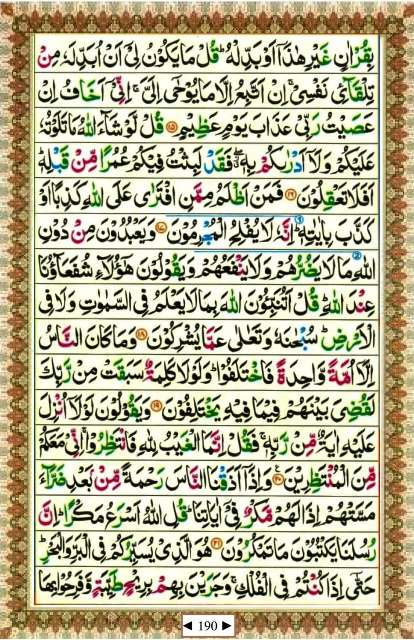 بِقُرْاٰنٍ غَيْرِ هٰذَاۤ اَوْ بَدِّلْهُ ؕ قُلْ مَا يَكُوْنُ لِيْۤ اَنْ اُبَدِّلَهٗ مِنْ
تِلْقَآئِ نَفْسِيْ ۚ اِنْ اَتَّبِعُ اِلَّا مَا يُوْحٰۤى اِلَيَّ ۚ اِنِّيْۤ اَخَافُ اِنْ
عَصَيْتُ رَبِّيْ عَذَابَ يَوْمٍ عَظِيْمٍ ﴿۱۵﴾ قُلْ لَّوْ شَآءَ اللّٰهُ مَا تَلَوْتُهٗ
عَلَيْكُمْ وَلَاۤ اَدْرٰىكُمْ بِهٖ ۖ فَقَدْ لَبِثْتُ فِيْكُمْ عُمُرًا مِّنْ قَبْلِهٖ ؕ
اَفَلَا تَعْقِلُوْنَ ﴿۱۶﴾ فَمَنْ اَظْلَمُ مِمَّنِ افْتَرٰى عَلَى اللّٰهِ كَذِبًا اَوْ
كَذَّبَ بِاٰيٰتِهٖ ؕ اِنَّهٗ لَا يُفْلِحُ الْمُجْرِمُوْنَ ﴿۱۷﴾ وَيَعْبُدُوْنَ مِنْ دُوْنِ
اللّٰهِ مَا لَا يَضُرُّهُمْ وَلَا يَنْفَعُهُمْ وَيَقُوْلُوْنَ هٰۤؤُلَآءِ شُفَعَآؤُنَا
عِنْدَ اللّٰهِ ؕ قُلْ اَتُنَبِّـُٔوْنَ اللّٰهَ بِمَا لَا يَعْلَمُ فِي السَّمٰوٰتِ وَلَا فِي
الْاَرْضِ ؕ سُبْحٰنَهٗ وَتَعٰلٰى عَمَّا يُشْرِكُوْنَ ﴿۱۸﴾ وَمَا كَانَ النَّاسُ
اِلَّاۤ اُمَّةً وَّاحِدَةً فَاخْتَلَفُوْا ؕ وَلَوْلَا كَلِمَةٌ سَبَقَتْ مِنْ رَّبِّكَ
لَقُضِيَ بَيْنَهُمْ فِيْمَا فِيْهِ يَخْتَلِفُوْنَ ﴿۱۹﴾ وَيَقُوْلُوْنَ لَوْلَاۤ اُنْزِلَ
عَلَيْهِ اٰيَةٌ مِّنْ رَّبِّهٖ ۚ فَقُلْ اِنَّمَا الْغَيْبُ لِلّٰهِ فَانْتَظِرُوْا ۚ اِنِّيْ مَعَكُمْ
مِّنَ الْمُنْتَظِرِيْنَ ﴿۲۰﴾ وَاِذَاۤ اَذَقْنَا النَّاسَ رَحْمَةً مِّنْۢ بَعْدِ ضَرَّآءَ
مَسَّتْهُمْ اِذَا لَهُمْ مَّكْرٌ فِيْۤ اٰيَاتِنَا ؕ قُلِ اللّٰهُ اَسْرَعُ مَكْرًا ؕ اِنَّ
رُسُلَنَا يَكْتُبُوْنَ مَا تَمْكُرُوْنَ ﴿۲۱﴾ هُوَ الَّذِيْ يُسَيِّرُكُمْ فِي الْبَرِّ وَالْبَحْرِ ؕ
حَتّٰۤى اِذَا كُنْتُمْ فِي الْفُلْكِ ۚ وَجَرَيْنَ بِهِمْ بِرِيْحٍ طَيِّبَةٍ وَّفَرِحُوْا بِهَا
◄ 190 ►